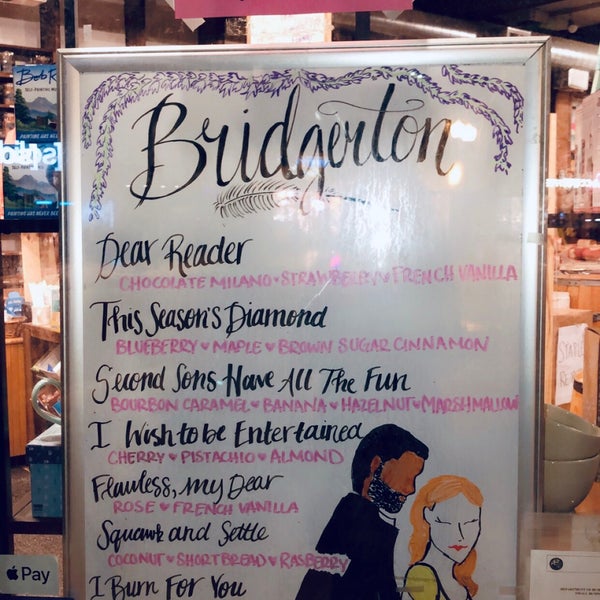 Bob R
SELF-PAINTING MU
PAINTING HAS NEV
PAINTING HAS NEVER BE
Bridgerton
Dear Reader
CHOCOLATE MILANO ♥ STRAWBERRY ♥ FRENCH VANILLA
This Season's Diamond
BLUEBERRY ♥ MAPLE ♥ BROWN SUGAR CINNAMON
Second Sons Have All The Fun
BOURBON CARAMEL ♥ BANANA ♥ HAZELNUT ♥ MARSHMALLOW
I Wish to be Entertained
CHERRY ♥ PISTACHIO ♥ ALMOND
Flawless, my Dear
ROSE ♥ FRENCH VANILLA
Squawk and Settle
COCONUT ♥ SHORTBREAD ♥ RASBERRY
I Burn For You
Pay